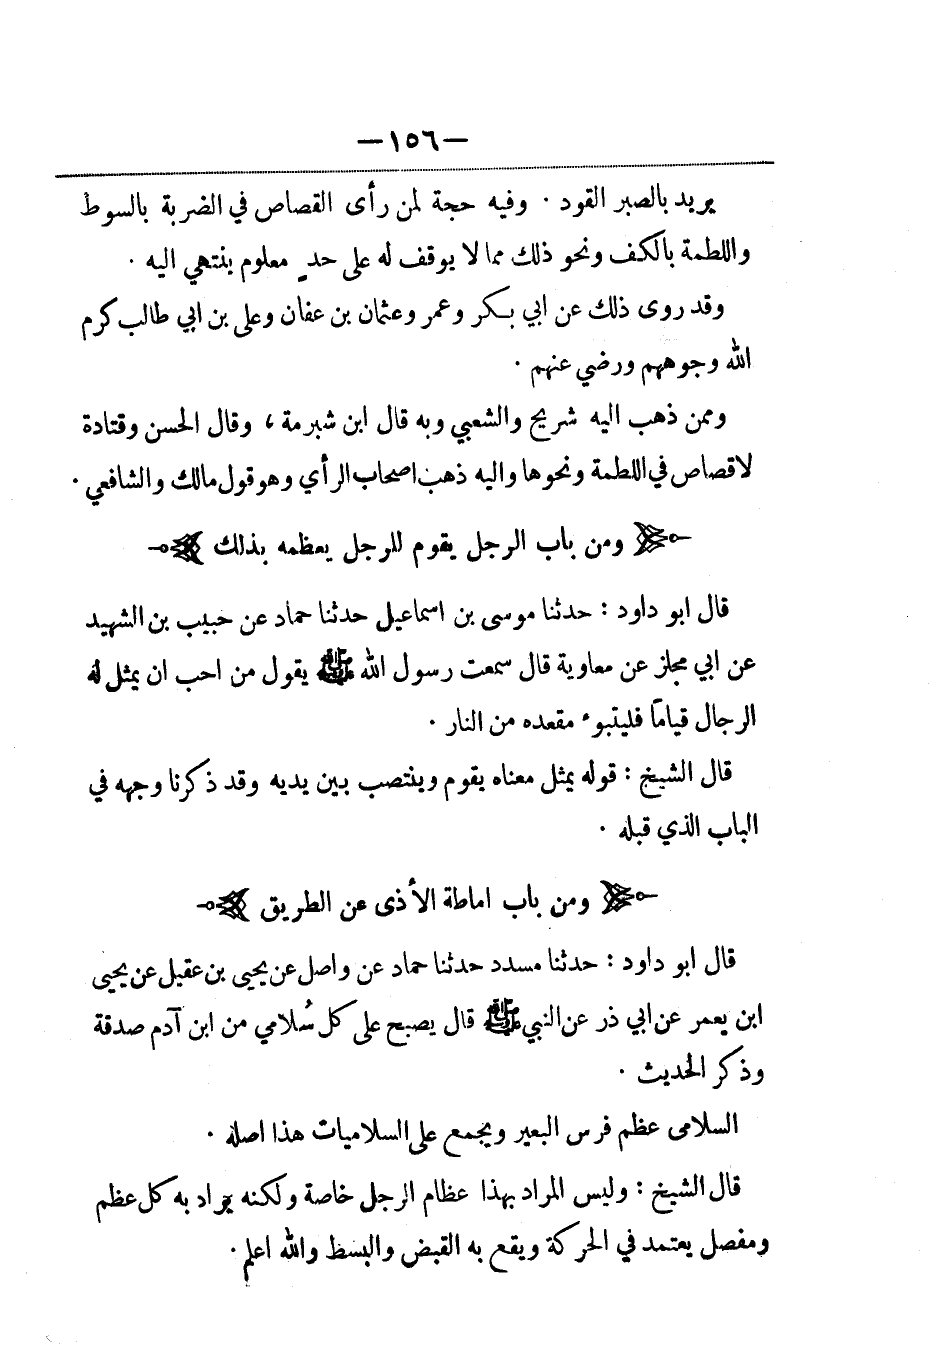 —١٥٦—
يريد بالصبر القود · وفيه حجة لمن رأى القصاص في الضربة بالسوط
واللطمة بالكف ونحو ذلك مما لا يوقف له على حدٍ معلوم ينتهي اليه ·
وقد روى ذلك عن ابي بكر وعمر وعثمان بن عفان وعلى بن ابي طالب كرم
الله وجوههم ورضي عنهم ·
وممن ذهب اليه شريح والشعبي وبه قال ابن شبرمة ، وقال الحسن وقتادة
لا قصاص في اللطمة ونحوها واليه ذهب اصحاب الرأي وهو قول مالك والشافعي ·
ومن باب الرجل يقوم للرجل يعظمه بذلك
قال ابو داود : حدثنا موسى بن اسماعيل حدثنا حماد عن حبيب بن الشهيد
عن ابي مجلز عن معاوية قال سمعت رسول الله ﷺ يقول من احب ان يمثل له
الرجال قياماً فليتبوء مقعده من النار ·
قال الشيخ : قوله يمثل معناه يقوم وينتصب بين يديه وقد ذكرنا وجهه في
الباب الذي قبله ·
ومن باب اماطة الأذى عن الطريق
قال ابو داود : حدثنا مسدد حدثنا حماد عن واصل عن يحيى بن عقيل عن يحيى
ابن يعمر عن ابي ذر عن النبي ﷺ قال يصبح على كل سُلامي من ابن آدم صدقة
وذكر الحديث ·
السلامى عظم فرس البعير ويجمع على السلاميات هذا اصله ·
قال الشيخ : وليس المراد بهذا عظام الرجل خاصة ولكنه يراد به كل عظم
ومفصل يعتمد في الحركة ويقع به القبض والبسط والله اعلم ·